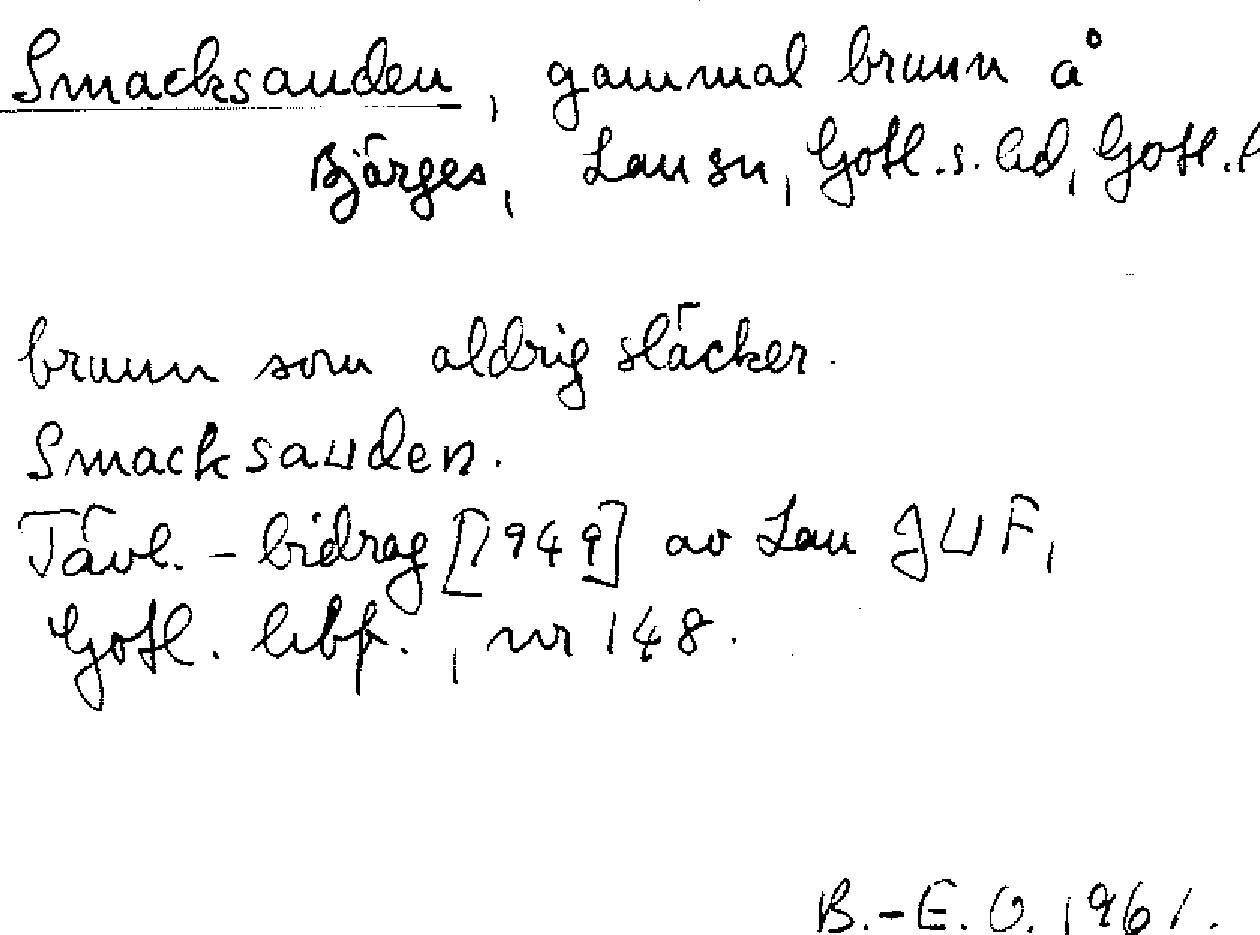 Smacksauden, gammal brunn å
Björges, Lau sn, Gotl. s. hd, Gotl. l
brunn som aldrig släcker.
Smacksauden.
Tävl.-bidrag [1949] av Lau JUF,
Gotl. hbf., nr 148.
B.-E. O. 1961.